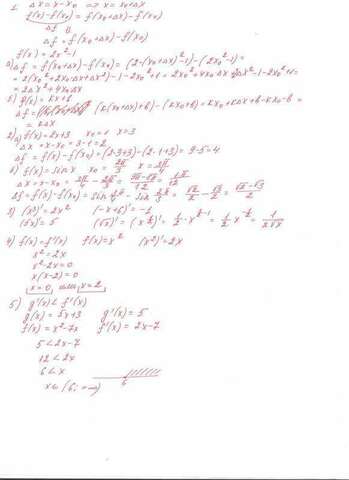 1. Δx = x - x₀ => x = x₀+Δx
f(x)-f(x₀) = f(x₀+Δx)-f(x₀)
Δf
Δf = f(x₀+Δx)-f(x₀)
f(x) = 2x²-1
a) Δf = f(x₀+Δx)-f(x₀) = (2·(x₀+Δx)²-1)-(2x₀²-1) =
= 2(x₀²+2x₀Δx+Δx²)-1-2x₀²+1 = 2x₀²+4x₀Δx+2Δx²-1-2x₀²+1 =
= 2Δx²+4x₀Δx
б) f(x) = kx+b
Δf = (k(x₀+Δx)+b)-(kx₀+b) = kx₀+kΔx+b-kx₀-b =
= kΔx
2) a) f(x) = 2x+3 x₀=1 x=3
Δx = x-x₀ = 3-1 = 2
Δf = f(x)-f(x₀) = (2·3+3)-(2·1+3) = 9-5 = 4
f(x) = sin x x₀ = 2π/3 x = 2π/4
Δf = f(x)-f(x₀) = sin 2π/4 - sin 2π/3 = √2/2 - √3/2 = (√2-√3)/2
3) (x²)' = 2x² (-x+6)' = -1
(5x)' = 5 (√x)' = (x^½)' = ½·x^(½-1) = ½·x^(-½) = 1/(2√x)
4) f(x) = f'(x) f(x) = x² (x²)' = 2x
x² = 2x
x²-2x = 0
x(x-2) = 0
x=0, или x=2
5) g'(x) < f'(x)
g(x) = 5x+3 g'(x) = 5
f(x) = x²-7x f'(x) = 2x-7
5 < 2x-7
12 < 2x
6 < x
6
x∈(6; +∞)